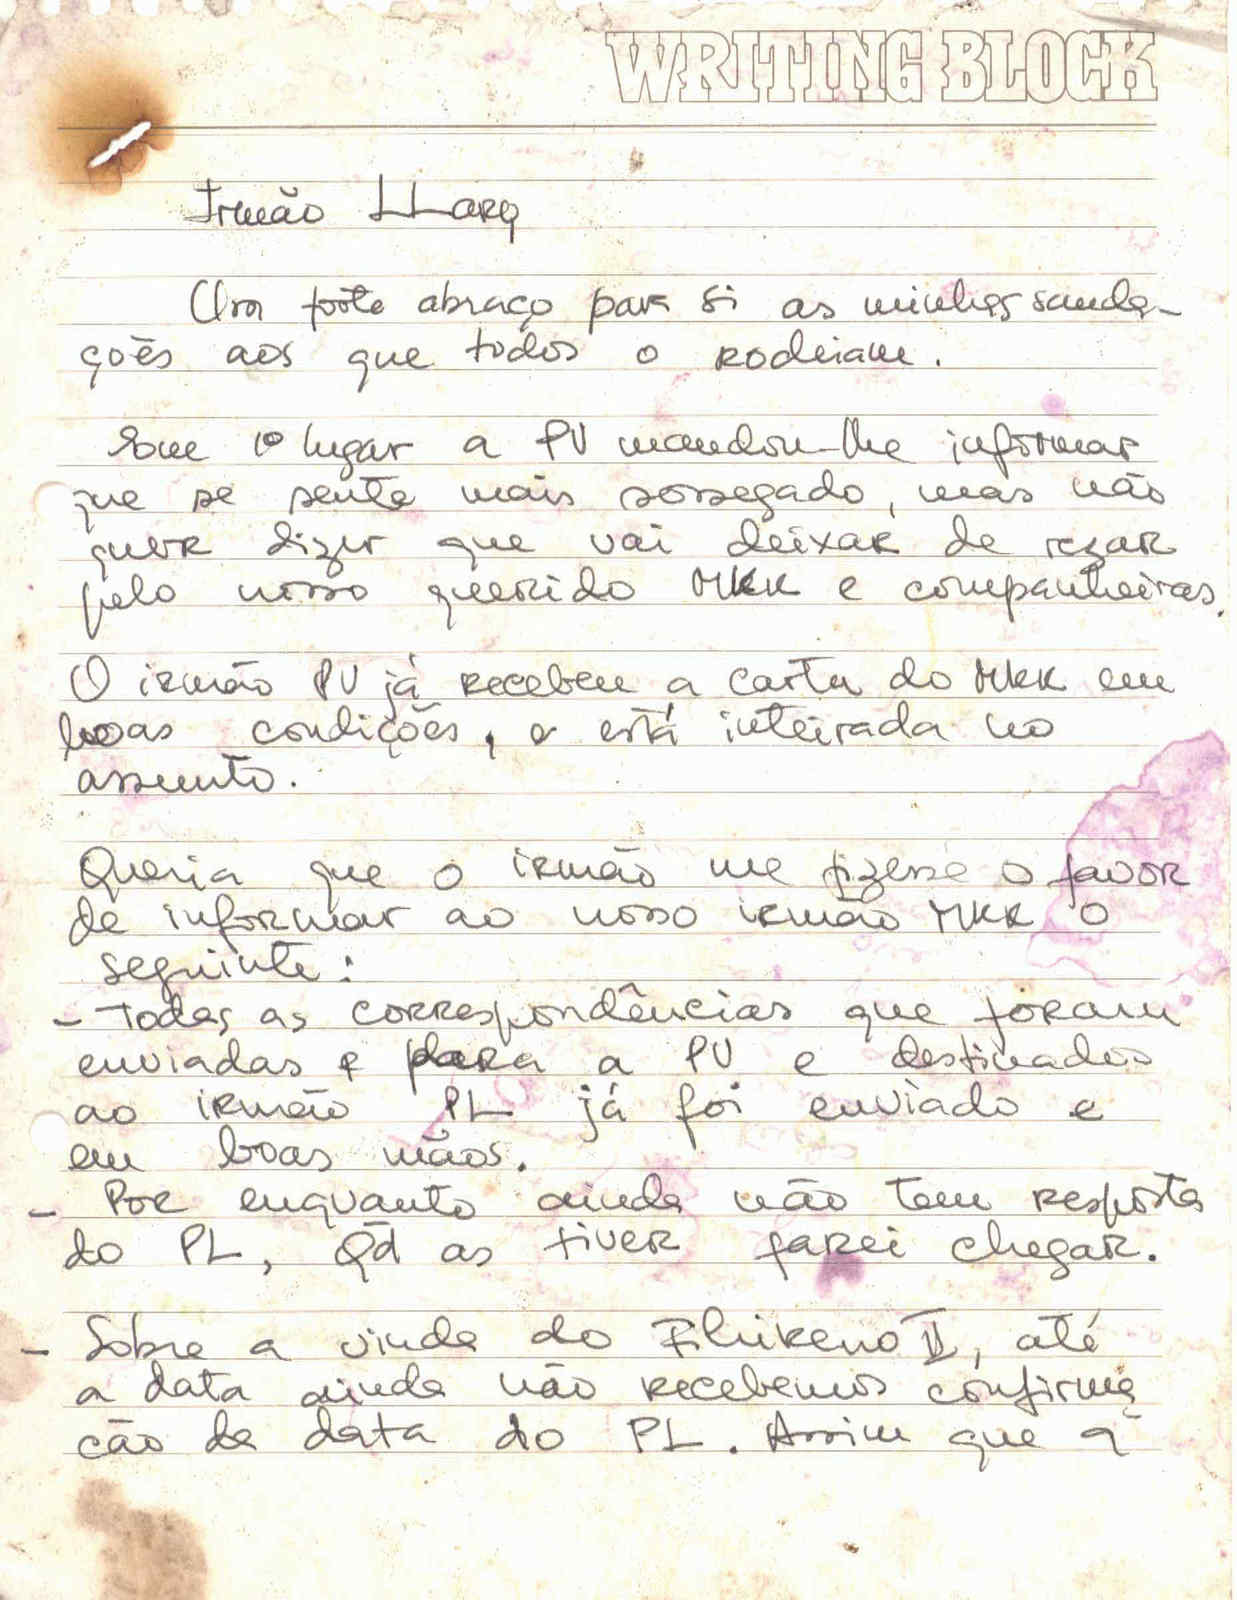 WRITING BLOCK
Irmão LLarq
Um forte abraço para si as minhas sauda-
ções aos que todos o rodeiam.
Em 1º lugar a PV mandou-lhe informar
que se sente mais sossegado, mas não
quer dizer que vai deixar de rezar
pelo nosso querido MKK e companheiras.
O irmão PV já recebeu a carta do MKK em
boas condições, e está inteirada no
assunto.
Queria que o irmão me fizesse o favor
de informar ao nosso irmão MKK o
seguinte:
- Todas as correspondências que foram
enviadas e para a PV e destinados
ao irmão PL já foi enviado e
em boas mãos.
- Por enquanto ainda não tem resposta
do PL, Qd as tiver farei chegar.
- Sobre a vinda do Flukeno II, até
a data ainda não recebemos confirma
ção da data do PL. Assim que a